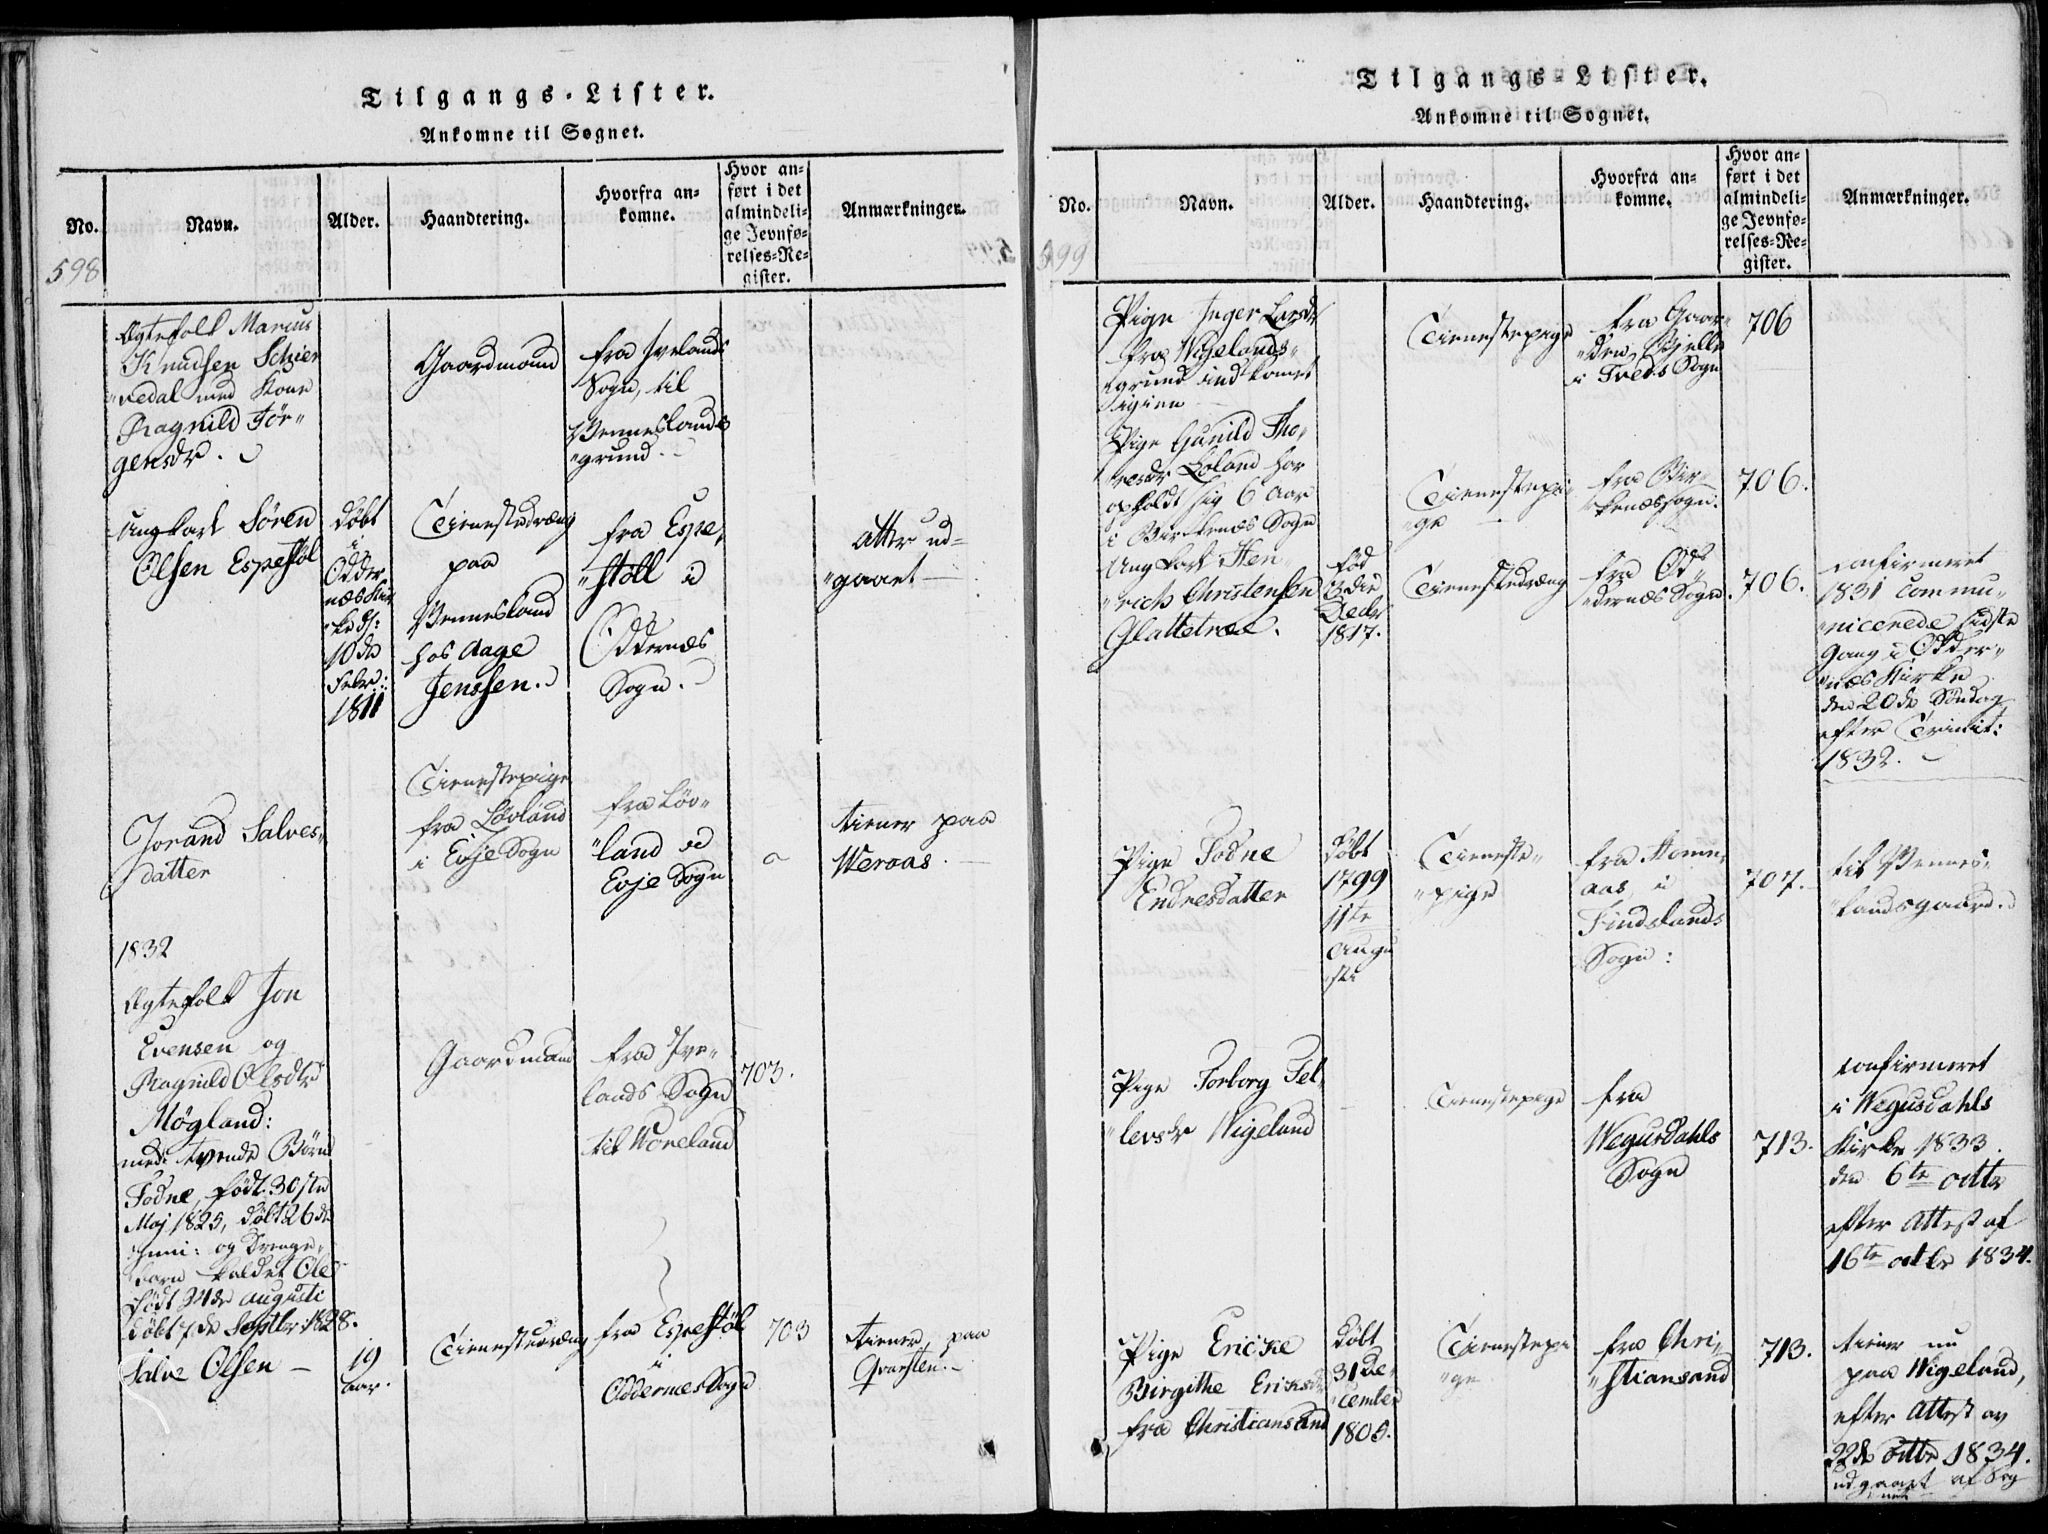 Tilgangs-Lister.
Ankomne til Sognet.
No.
Navn.
Alder.
Haandtering.
Hvorfra an-
komne.
Hvor an-
ført i det
almindeli-
ge Jevnfø-
relses-Re-
gister.
Anmærkninger.
598
Ægtefolk Marcus
Knudsen Schier
"vedal med Kone
Ragnild Jör-
gensdr.
Gaardmand
fra Ivelands
Sogn, til
Venneslands
"grund.
Ungkarl Sören
Olsen Espestöl
döbt
i
Odder
næs Kir
"ke d:
10de
Febr:
1811
Tienestedreng
paa
Vennesland
hos Aage
Jenssen.
fra Espe
"stöll i
Oddernæs
Sogn.
atter ud-
"gaaet
Jorand Salves-
datter
Tienestepige
fra Lövland
i Evje Sogn
fra Löv-
"land i
Evje Sogn
tiener paa
Weraas.
1832
Ægtefolk Jon
Evensen og
Ragnild Olsdtr
Mögland:
med tvende Börn
Todne, födt 30ste
Maj 1825, döbt 26de
Juni: og Drenge-
barn kaldet Ole
födt 24de Augusti
döbt 7de Septbr: 1828.
Gaardmand
fra Ive-
lands Sogn
til Wöreland
703.
Salve Olsen
19
aar.
Tienestedreng
fra Espestöl
i
Oddernes Sogn
703
tiener paa
Qvarsten.
Tilgangs-Lister.
Ankomne til Sognet.
No.
Navn.
Alder.
Haandtering.
Hvorfra an-
komne.
Hvor an-
ført i det
almindeli-
ge Jevnfø-
relses-Re-
gister.
Anmærkninger.
599
Pige Inger Larsdr
fra Wigelands-
grund indkomet
igien
Tienestepige
fra Gaar-
"den
i Tveds Sogn
706
Pige Gunild Tho-
resdr Loland har
opholdt sig 6 Aar
i Birkenæs Sogn
Tienestepi-
"ge
fra Bir-
"kenæs sogn.
706.
Ung Karl Hen-
"rich Christensen
Glattetræe.
föd
3die
Decbr
1817.
Tienestedreng
fra Od-
"dernæs Sogn.
706.
confirmeret
1831 commu-
"nicerede sidste
Gang i Odder-
"næs Kirke
den 20de Söndag
efter Trinit:
1832.
Pige Todne
Endresdatter
döbt
1799
11te
Augu
sti
Tieneste-
"pige
fra Homm-
aas i
Findslands
Sogn:
707.
til Vennes-
"landsgaard.
Pige Torborg Tel-
"levsdr Wigeland
Tienestepige
fra
Wegusdahls
Sogn
713.
confirmeret
i Wegusdahls
Kirke 1833.
den 6te octbr
efter Attest af
16te octbr 1834.
Pige Ericke
Birgithe Ericksdr
fra Christiansand
döbt
31 De-
"cember
1805.
Tienestepi
"ge
fra Chri-
"stiansand
713.
tiener nu
paa Wigeland,
efter Attest av
22de Octbr 1834.
udgaaet af Sog
net